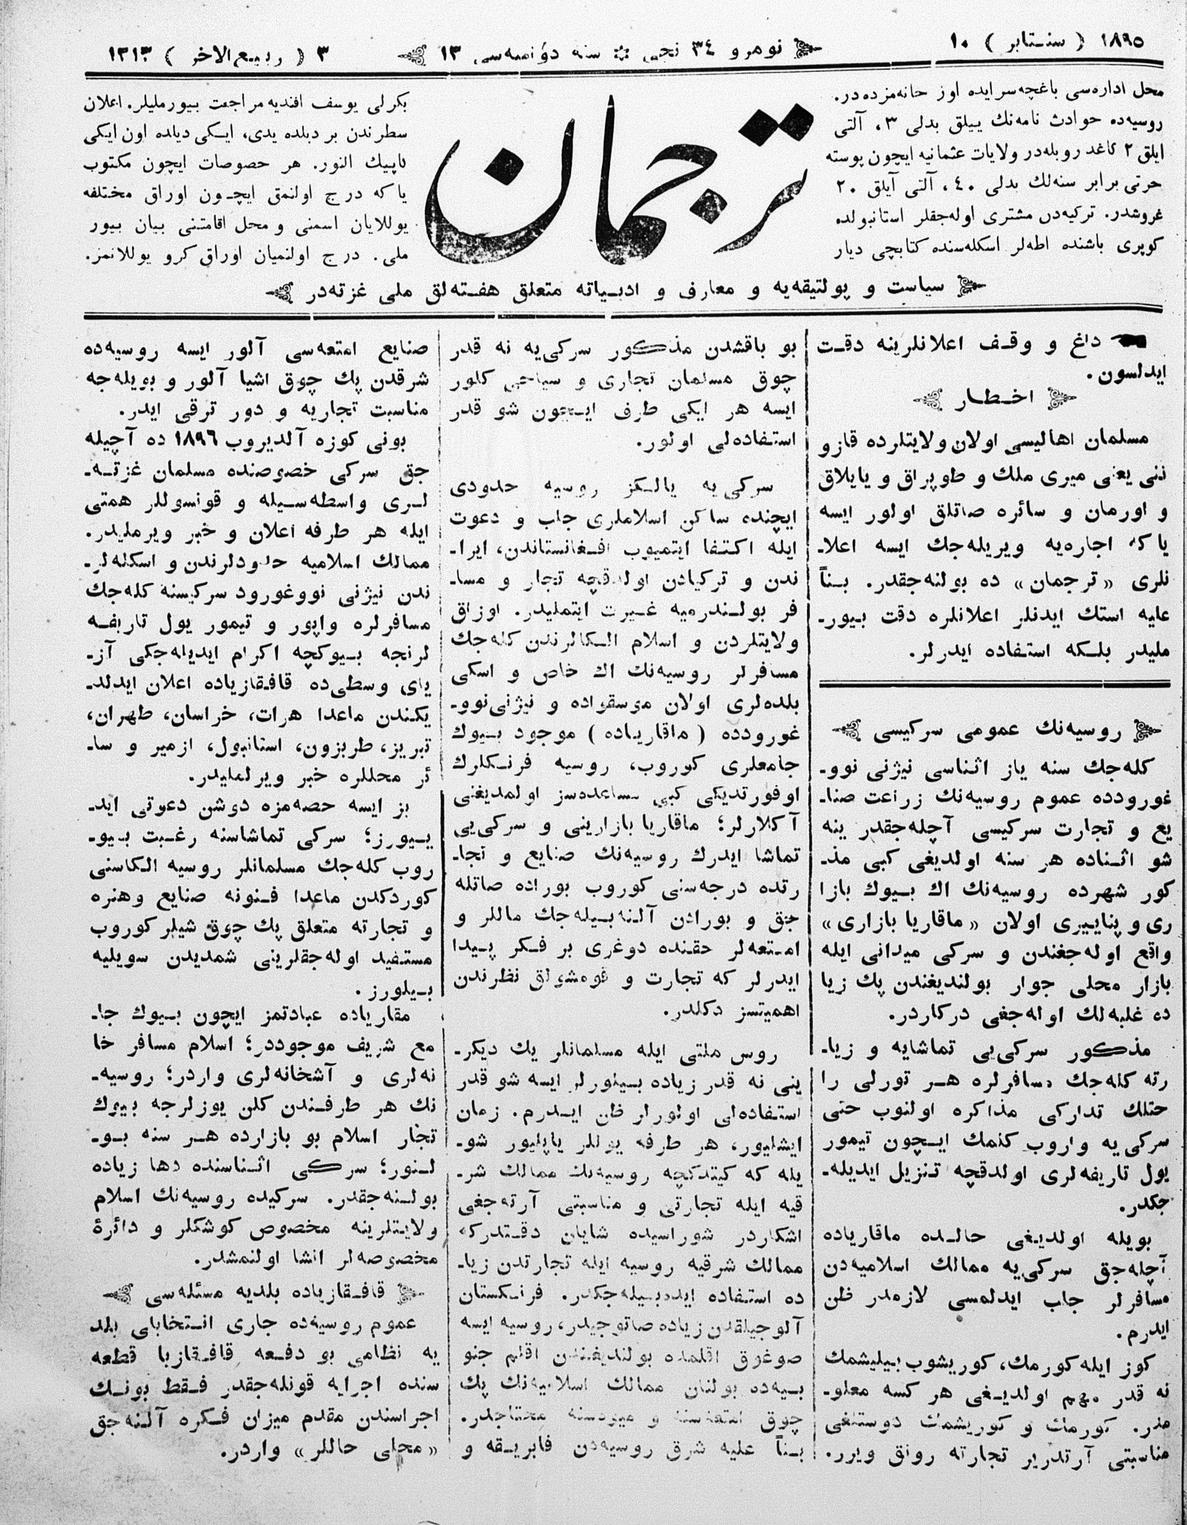 ١٨٩٥ ( سنتابر ) ١٠
نومرو ٣٤ نجی سنه دؤامیه‌سی ١٣
٣ ( ربیع الاخر ) ١٣١٣
محل اداره‌سی باغچه‌سرایده اوز خانه‌مزده‌در.
روسیه‌ده حوادث نامه‌نك ییللق بدلی ٣، آلتی
ایلق ٢ كاغد روبله‌در ولایات عثمانیه ایچون پوسته
خرتی برابر سنه‌لك بدلی ٤٠، آلتی آیلق ٢٠
غروشدر. تركیه‌دن مشتری اوله‌جقلر استانبولده
كوپری باشنده اطه‌لر اسكله‌سنده كتابچی دیار
ترجمان
بكرلی یوسف افندیه مراجعت بیورملیلر. اعلان
سطرندن بر دیلده یدی، ایكی دیلده اون ایكی
كاپیك النور. هر خصوصات ایچون مكتوب
یاكه درج اولنمق ایچون اوراق مختلفه
یوللایان اسمنی و محل اقامتنی بیان بیور
ملی. درج اولنمیان اوراق كرو یوللانمز.
سیاست و پولتیقه‌یه و معارف و ادبیاته متعلق هفته‌لق ملی غزته‌در
داغ و وقف اعلانلرینه دقت
ایدلسون.
اخطار
مسلمان اهالیسی اولان ولایتلرده قازو
ننی یعنی میری ملك و طوپراق و یایلاق
و اورمان و سائره صاتلق اولور ایسه
یاكه اجاره‌یه ویریله‌جك ایسه اعلا‌ـ
نلری «ترجمان» ده بولنه‌جقدر. بناً
علیه استك ایدنلر اعلانلره دقت بیور‌ـ
ملیدر بلكه استفاده ایدرلر.
روسیه‌نك عمومی سركیسی
كله‌جك سنه یاز اثناسی نیژنی نوو‌ـ
غورودده عموم روسیه‌نك زراعت صنا‌ـ
یع و تجارت سركیسی آچله‌جقدر ینه
شو اثناده هر سنه اولدیغی كبی مذ‌ـ
كور شهرده روسیه‌نك اك بیوك بازا
ری و پناییری اولان «ماقاریا بازاری»
واقع اوله‌جغندن و سركی میدانی ایله
بازار محلی جوار بولندیغندن پك زیا
ده غلبه‌لك اوله‌جغی دركاردر.
مذكور سركی‌یی تماشایه و زیا‌ـ
رته كله‌جك مسافرلره هر تورلی را
حتلك تداركی مذاكره اولنوب حتی
سركی‌یه واروب كتمك ایچون تیمور
یول تاریفه‌لری اولدقچه تنزیل ایدیله‌ـ
جكدر.
بویله اولدیغی حالده ماقاریاده
آچله‌جق سركی‌یه ممالك اسلامیه‌دن
مسافرلر جلب ایدلمسی لازمدر ظن
ایدرم.
كوز ایله كورمك، كوریشوب بیلیشمك
نه قدر مهم اولدیغی هر كسه معلو‌ـ
مدر. كورمك و كوریشمك دوستلغی
مناسبتی آرتدریر تجارته رونق ویرر.
بو باقشدن مذكور سركی‌یه نه قدر
چوق مسلمان تجاری و سیاحی كلور
ایسه هر ایكی طرف ایچون شو قدر
استفاده‌لی اولور.
سركی‌یه یالكز روسیه حدودی
ایچنده ساكن اسلاملری جلب و دعوت
ایله اكتفا ایتمیوب افغانستاندن، ایرا‌ـ
ندن و تركیادن اولدقچه تجار و مسا‌ـ
فر بولندرمیه غیرت ایتملیدر. اوزاق
ولایتلردن و اسلام الكالرندن كله‌جك
مسافرلر روسیه‌نك اك خاص و اسكی
بلده‌لری اولان موسقواده و نیژنی نوو‌ـ
غورودده ( ماقاریاده ) موجود بیوك
جامعلری كوروب، روسیه فرنكلرك
اوقورتدیكی كبی مساعده‌سز اولمدیغنی
آكلارلر؛ ماقاریا بازارینی و سركی‌یی
تماشا ایدرك روسیه‌نك صنایع و تجا‌ـ
رتده درجه‌سنی كوروب بوراده صاتله
جق و بورادن آلنه‌بیله‌جك ماللر و
امتعه‌لر حقنده دوغری بر فكر پیدا
ایدرلر كه تجارت و قومشولق نظرندن
اهمیتسز دكلدر.
روس ملتی ایله مسلمانلر یك دیكر‌ـ
ینی نه قدر زیاده بیلورلر ایسه شو قدر
استفاده‌لی اولورلر ظن ایدرم. زمان
ایشلیور، هر طرفه یوللر یاپلیور شو‌ـ
یله كه كیتدكچه روسیه‌نك ممالك شر‌ـ
قیه ایله تجارتی و مناسبتی آرته‌جغی
اشكاردر شوراسیده شایان دقتدركه
ممالك شرقیه روسیه ایله تجارتدن زیا‌ـ
ده استفاده ایده‌بیله‌جكدر. فرنكستان
آلوجیلقدن زیاده صاتوجیدر، روسیه ایسه
صوغوق اقلمده بولندیغندن اقلم جنو
بیه‌ده بولنان ممالك اسلامیه‌نك پك
چوق امتعه‌سنه و میوه‌سنه محتاجدر.
بناً علیه شرق روسیه‌دن فابریقه و
صنایع امتعه‌سی آلور ایسه روسیه‌ده
شرقدن پك چوق اشیا آلور و بویله‌جه
مناسبت تجاریه و دور ترقی ایدر.
بونی كوزه آلدیروب ١٨٩٦ ده آچیله
جق سركی خصوصنده مسلمان غزته‌ـ
لری واسطه‌سیله و قونسوللر همتی
ایله هر طرفه اعلان و خبر ویرملیدر.
ممالك اسلامیه حدودلرندن و اسكله‌لر‌ـ
ندن نیژنی نووغورود سركیسنه كله‌جك
مسافرلره واپور و تیمور یول تاریفه
لرنجه بیوكچه اكرام ایدیله‌جكی آز‌ـ
یای وسطی‌ده قافقازیاده اعلان ایدلد‌ـ
یكندن ماعدا هرات، خراسان، طهران،
تبریز، طربزون، استانبول، ازمیر و سا‌ـ
ئر محللره خبر ویرلملیدر.
بز ایسه حصه‌مزه دوشن دعوتی اید‌ـ
ییورز؛ سركی تماشاسنه رغبت بیو‌ـ
روب كله‌جك مسلمانلر روسیه الكاسنی
كوردكدن ماعدا فنونه صنایع و هنره
و تجارته متعلق پك چوق شیلر كوروب
مستفید اوله‌جقلرینی شمدیدن سویلیه
بیلورز.
مقاریاده عبادتمز ایچون بیوك جا‌ـ
مع شریف موجوددر؛ اسلام مسافر خا
نه‌لری و آشخانه‌لری واردر؛ روسیه‌ـ
نك هر طرفندن كلن یوزلرجه بیوك
تجار اسلام بو بازارده هر سنه بو‌ـ
لنور؛ سركی اثناسنده دها زیاده
بولنه‌جقدر. سركیده روسیه‌نك اسلام
ولایتلرینه مخصوص كوشكلر و دائرهٔ
مخصوصه‌لر انشا اولنمشدر.
قافقازیاده بلدیه مسئله‌سی
عموم روسیه‌ده جاری انتخابای بلد
یه نظامی بو دفعه قافقازیا قطعه
سنده اجرایه قونله‌جقدر فقط بونك
اجراسندن مقدم میزان فكره آلنه‌جق
«محلی حاللر» واردر.